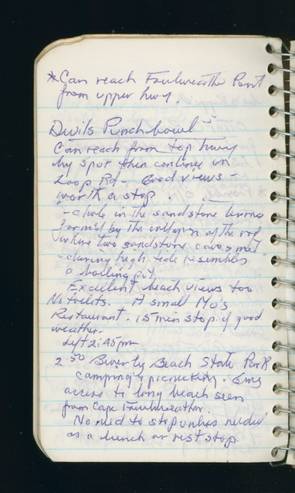 *Can reach Foulweather Point
from upper hwy.
Devils Punchbowl -
Can reach from top hwy
by spot then continue on
Loop Rd - Good views -
worth a stop.
- a hole in the sandstone
formed by the collapse of the roof
where two sandstone caves met
- during high tide resembles
a boiling pot.
Excellent beach views too
No toilets. A small Mo's
Restaurant. 15 min stop if good
weather.
Left 2:45 pm
2:50 Beverly Beach State Park
camping & picnicking.
access to long beach seen
from Cape Foulweather.
No need to stop unless needed
as a lunch or rest stop